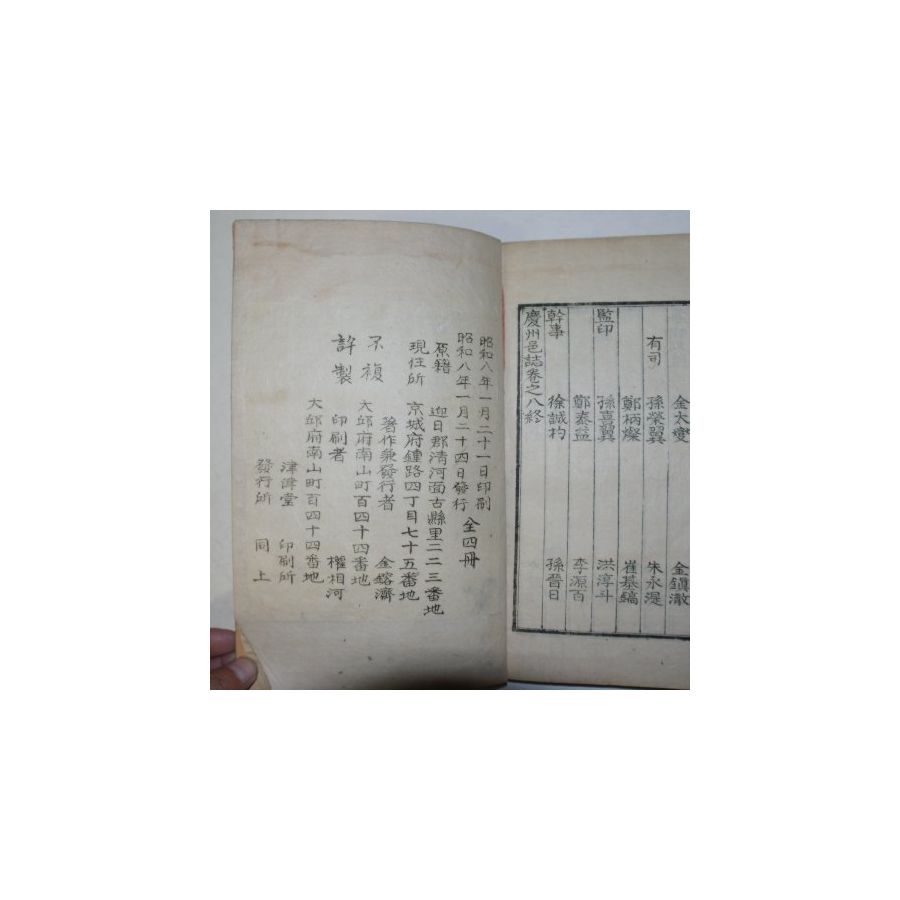 金太燮 金鎭澈
有司 孫榮翼 朱永湜
鄭柄燦 崔基鎬
監印 孫嘉翼 洪淳斗
鄭泰益 李源百
幹事 徐誠杓 孫晉日
慶州邑誌卷之八終
昭和八年一月二十一日印刷
昭和八年一月二十四日發行 全四冊
原籍 迎日郡清河面古縣里二二三番地
現住所 京城府鍾路四丁目七十五番地
著作兼發行者 金鎔濟
不複許製
大邱府南山町百四十四番地
印刷者 權相河
大邱府南山町百四十四番地
津津堂 印刷所
發行所 同上